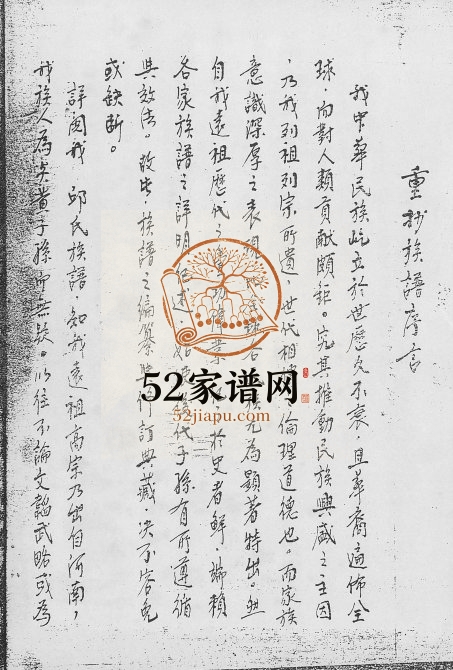 重抄族譜序言
我中華民族屹立於世歷久不衰，且華裔遍佈全
球，而對人類貢獻頗鉅。究其推動民族興盛之主因
，乃我列祖列宗所遺 世代相 倫理道德也。而家族
意識深厚之表現 尤為顯著特出。無
自我遠祖歷代之 於史者鮮，端賴
各家族譜之詳明 代子孫有所遵循
與效法。故此，族譜之編纂 訂典藏，決不容免
或缺斷。
詳閱我 邱氏族譜，知我遠祖高宗乃出自河南，
我族人為炎黃子孫 無疑。以往不論文韜武略或為
52家谱网
52jiapu.com